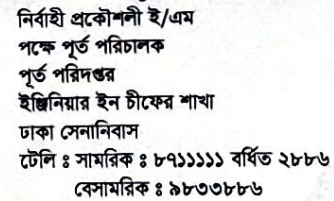 নির্বাহী প্রকৌশলী ই/এম
পক্ষে পূর্ত পরিচালক
পূর্ত পরিদপ্তর
ইঞ্জিনিয়ার ইন চীফের শাখা
ঢাকা সেনানিবাস
টেলি ঃ সামরিক ঃ ৮৭১১১১১ বর্ধিত ২৮৮৬
বেসামরিক ঃ ৯৮৩৩৮৮৬